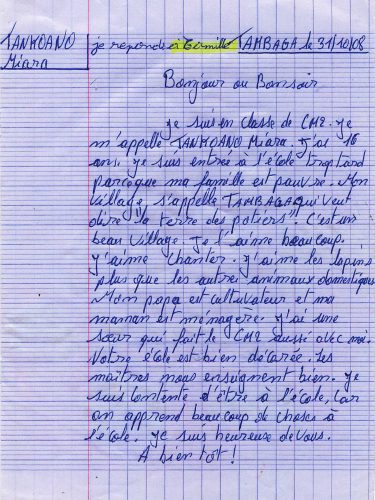 TANKOANO
Miara
je reponds à Armille TAMBAGA le 31/10/08
Bonjour ou Bonsoir
je suis en classe de CM2. je
m'appelle TANKOANO Miara. J'ai 16
ans. je suis entrée à l'école trop tard
parceque ma famille est pauvre. Mon
village s'appelle TAMBAGA qui veut
dire "la terre des potiers". C'est un
beau village. Je l'aime beaucoup.
j'aime chanter. j'aime les lapins
plus que les autres animaux domestiques
Mon papa est cultivateur et ma
maman est ménagère. j'ai une
sœur qui fait le CM2 aussi avec moi.
Votre école est bien décorée. Les
maîtres nous enseignent bien. je
suis contente d'être à l'école, car
on apprend beaucoup de choses à
l'école. je suis heureuse de vous.
A bientôt !